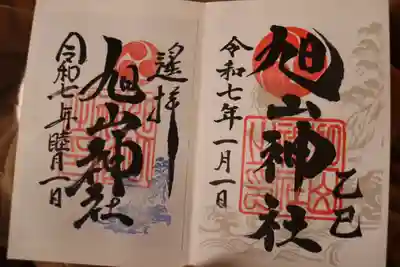 旭山神社
令和七年一月一日
乙巳
遥拝
旭山神社
令和七年睦月一日